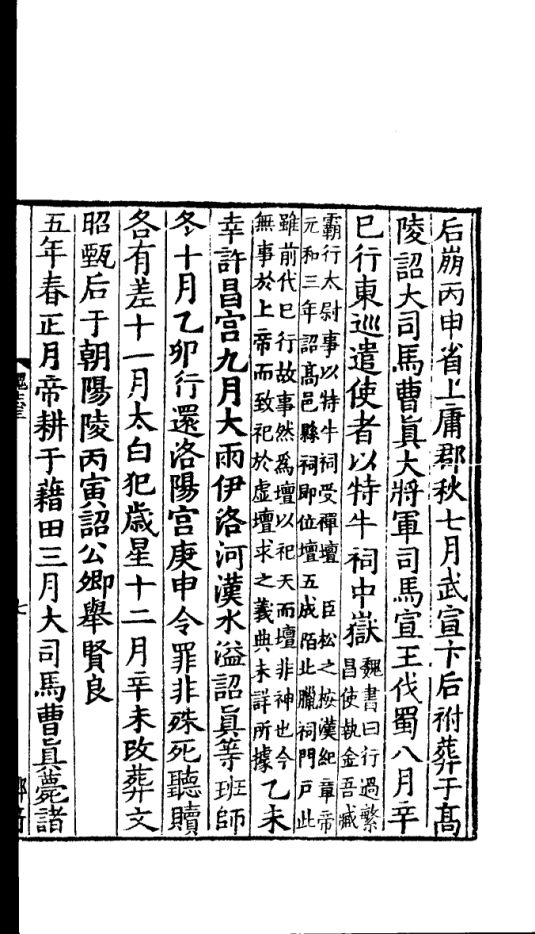 后崩丙申省上庸郡秋七月武宣卞后祔葬于髙
陵詔大司馬曹眞大將軍司馬宣王伐蜀八月辛
巳行東巡遣使者以特牛祠中嶽魏書曰行過繁
昌使執金吾臧
霸行太尉事以特牛祠受禪壇 臣松之按漢紀章帝
元和三年詔髙邑縣祠即位壇五成陌比臘祠門戸此
雖前代巳行故事然爲壇以祀天而壇非神也今
無事於上帝而致祀於虛壇求之義典未詳所據乙未
幸許昌宮九月大雨伊洛河漢水溢詔眞等班師
冬十月乙卯行還洛陽宮庚申令罪非殊死聽贖
各有差十一月太白犯歲星十二月辛未改葬文
昭甄后于朝陽陵丙寅詔公卿舉賢良
五年春正月帝耕于藉田三月大司馬曹眞薨諸
七